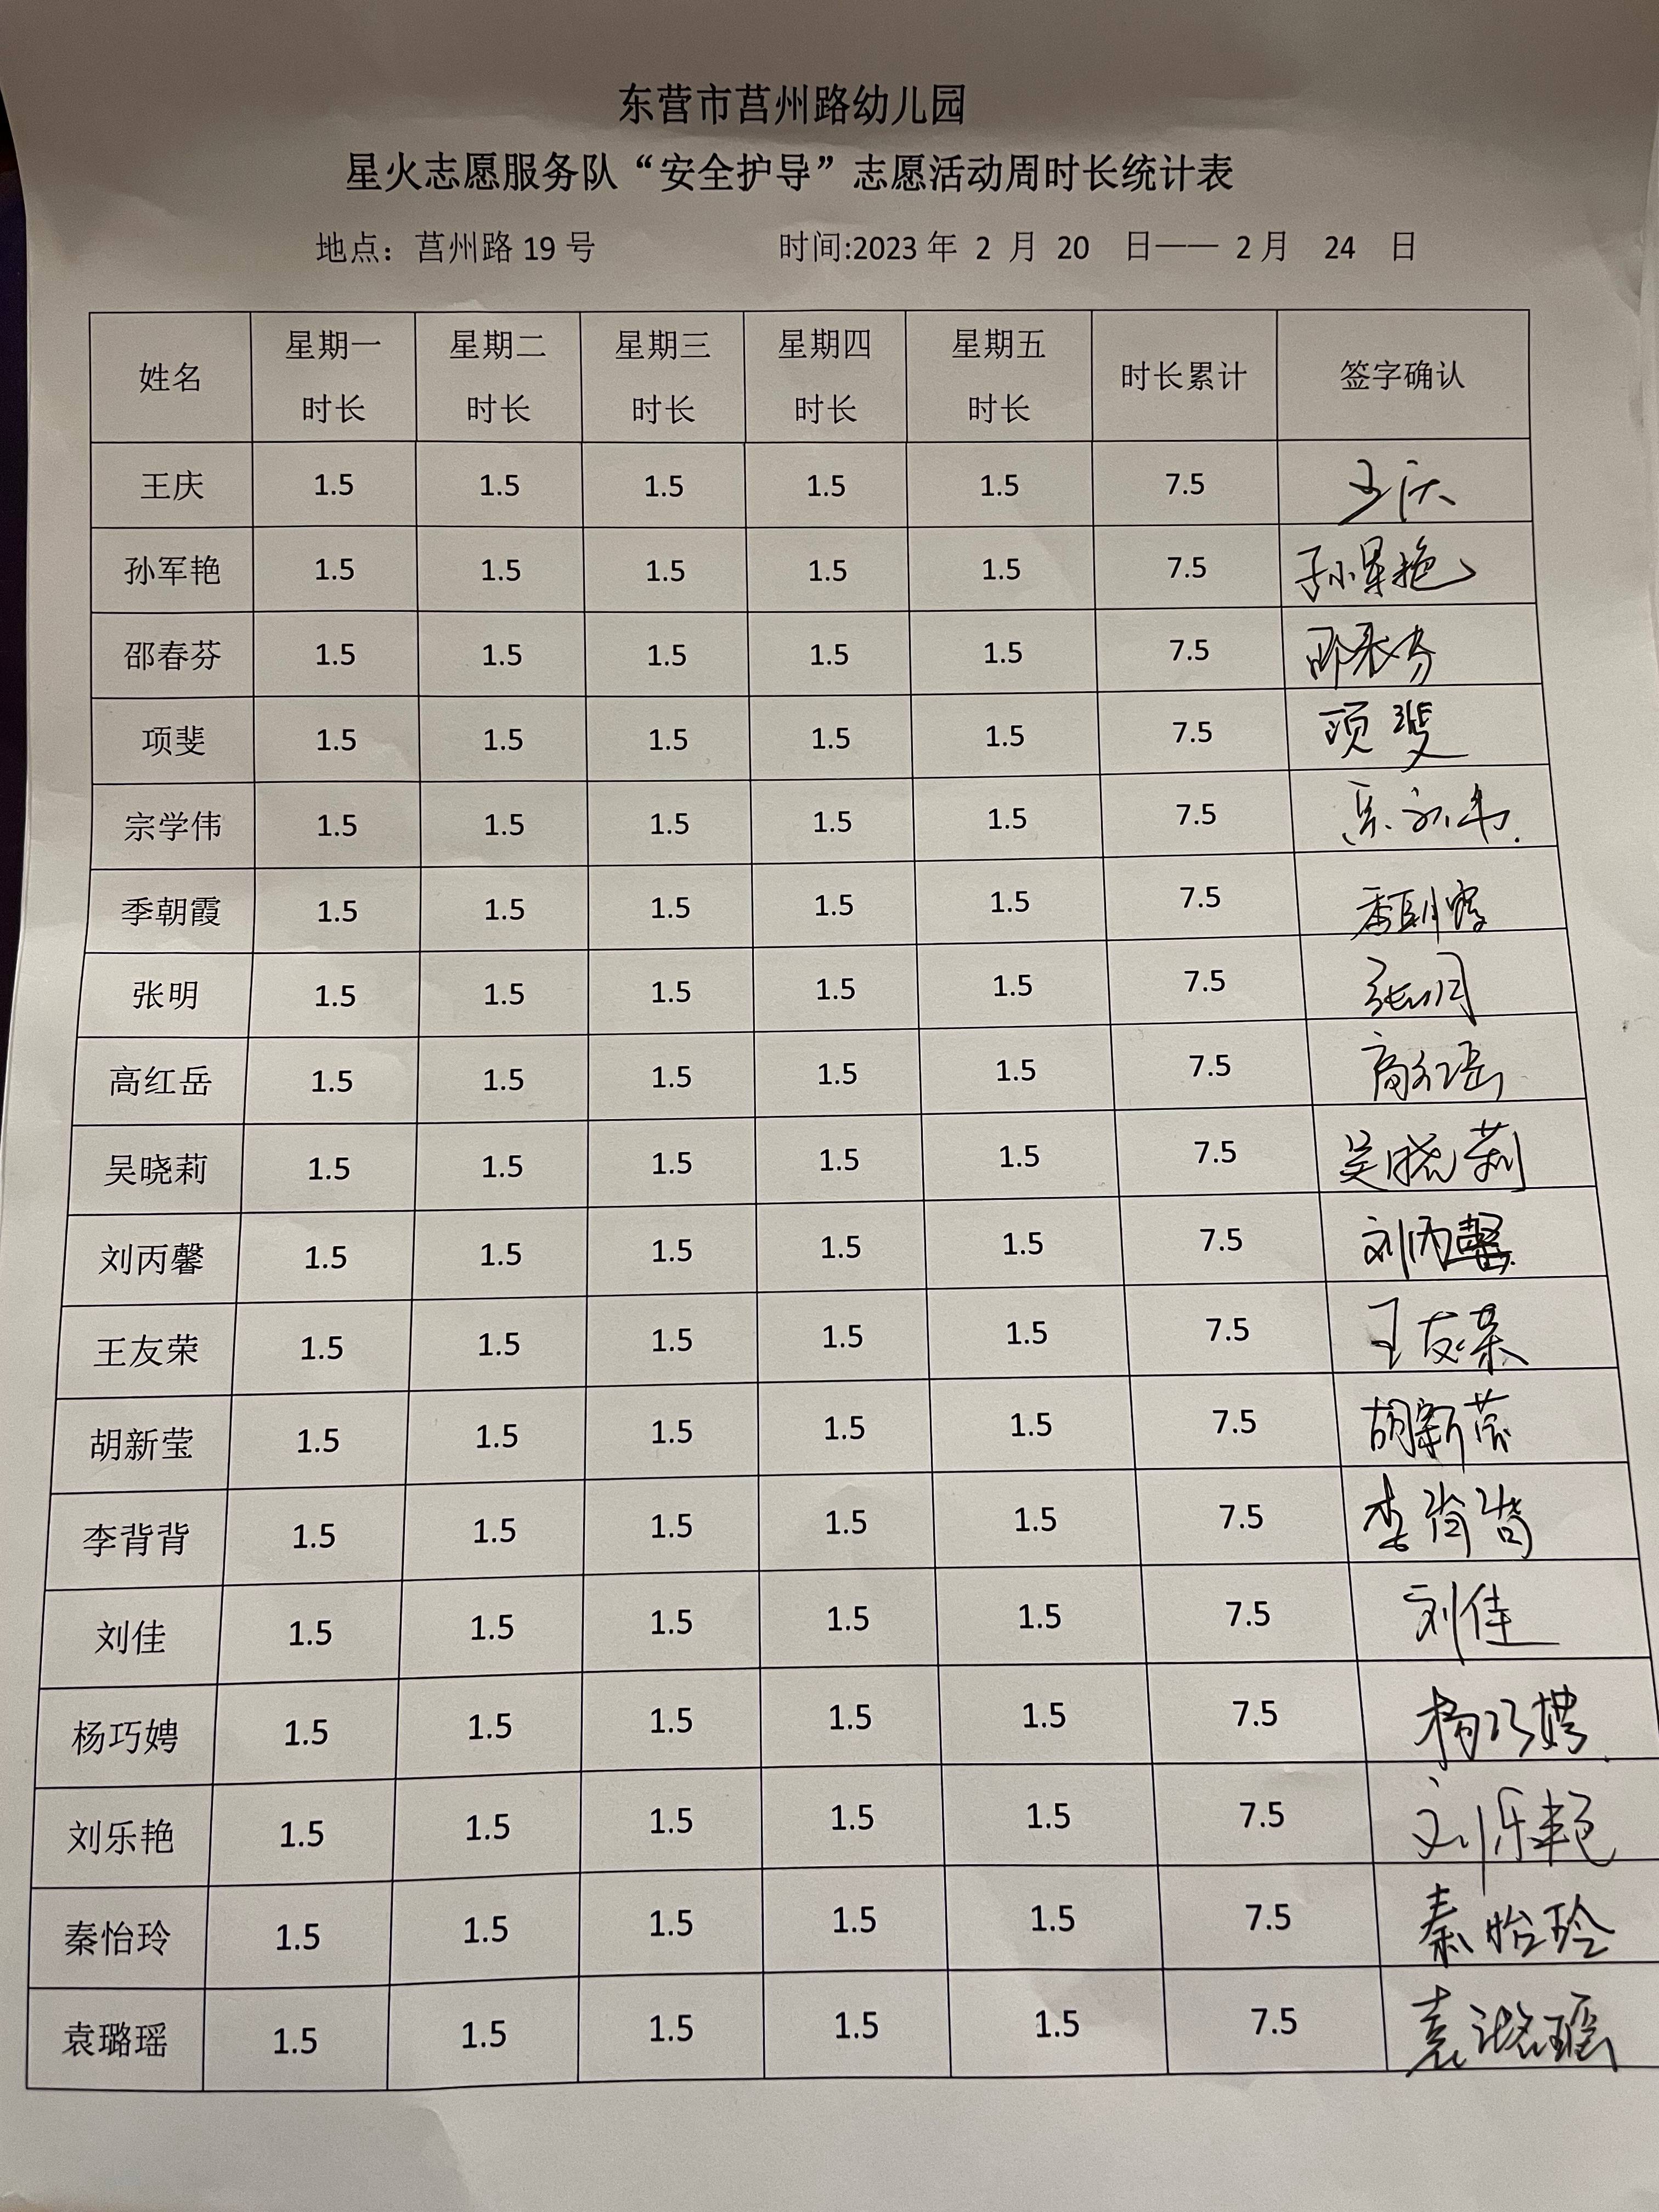 东营市莒州路幼儿园
星火志愿服务队“安全护导”志愿活动周时长统计表
地点：莒州路 19 号 时间:2023 年 2 月 20 日—— 2 月 24 日
姓名 星期一时长 星期二时长 星期三时长 星期四时长 星期五时长 时长累计 签字确认
王庆 1.5 1.5 1.5 1.5 1.5 7.5 王庆
孙军艳 1.5 1.5 1.5 1.5 1.5 7.5 孙军艳
邵春芬 1.5 1.5 1.5 1.5 1.5 7.5 邵春芬
项斐 1.5 1.5 1.5 1.5 1.5 7.5 项斐
宗学伟 1.5 1.5 1.5 1.5 1.5 7.5 宗学伟
季朝霞 1.5 1.5 1.5 1.5 1.5 7.5 季朝霞
张明 1.5 1.5 1.5 1.5 1.5 7.5 张明
高红岳 1.5 1.5 1.5 1.5 1.5 7.5 高红岳
吴晓莉 1.5 1.5 1.5 1.5 1.5 7.5 吴晓莉
刘丙馨 1.5 1.5 1.5 1.5 1.5 7.5 刘丙馨
王友荣 1.5 1.5 1.5 1.5 1.5 7.5 王友荣
胡新莹 1.5 1.5 1.5 1.5 1.5 7.5 胡新莹
李背背 1.5 1.5 1.5 1.5 1.5 7.5 李背背
刘佳 1.5 1.5 1.5 1.5 1.5 7.5 刘佳
杨巧娉 1.5 1.5 1.5 1.5 1.5 7.5 杨巧娉
刘乐艳 1.5 1.5 1.5 1.5 1.5 7.5 刘乐艳
秦怡玲 1.5 1.5 1.5 1.5 1.5 7.5 秦怡玲
袁璐瑶 1.5 1.5 1.5 1.5 1.5 7.5 袁璐瑶